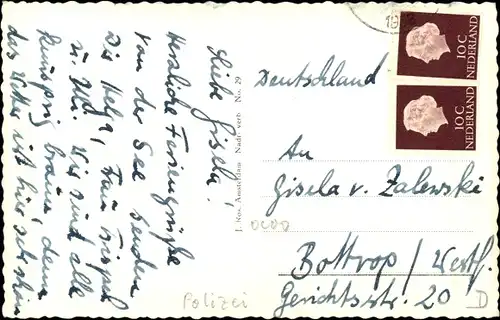 Liebe Gisela!
Herzliche Feriengrüße
von der See senden
Dir Helga,
u. Uli. Wir sind alle
braun, denn
das Wetter ist hier sehr schön
J. Nos. Amsterdam Nadr. verb No. 29
19
10C
NEDERLAND
10C
NEDERLAND
Deutschland
An
Gisela v. Zalewski
Bottrop / Westf.
Gerichtsstr. 20
Polizei
D